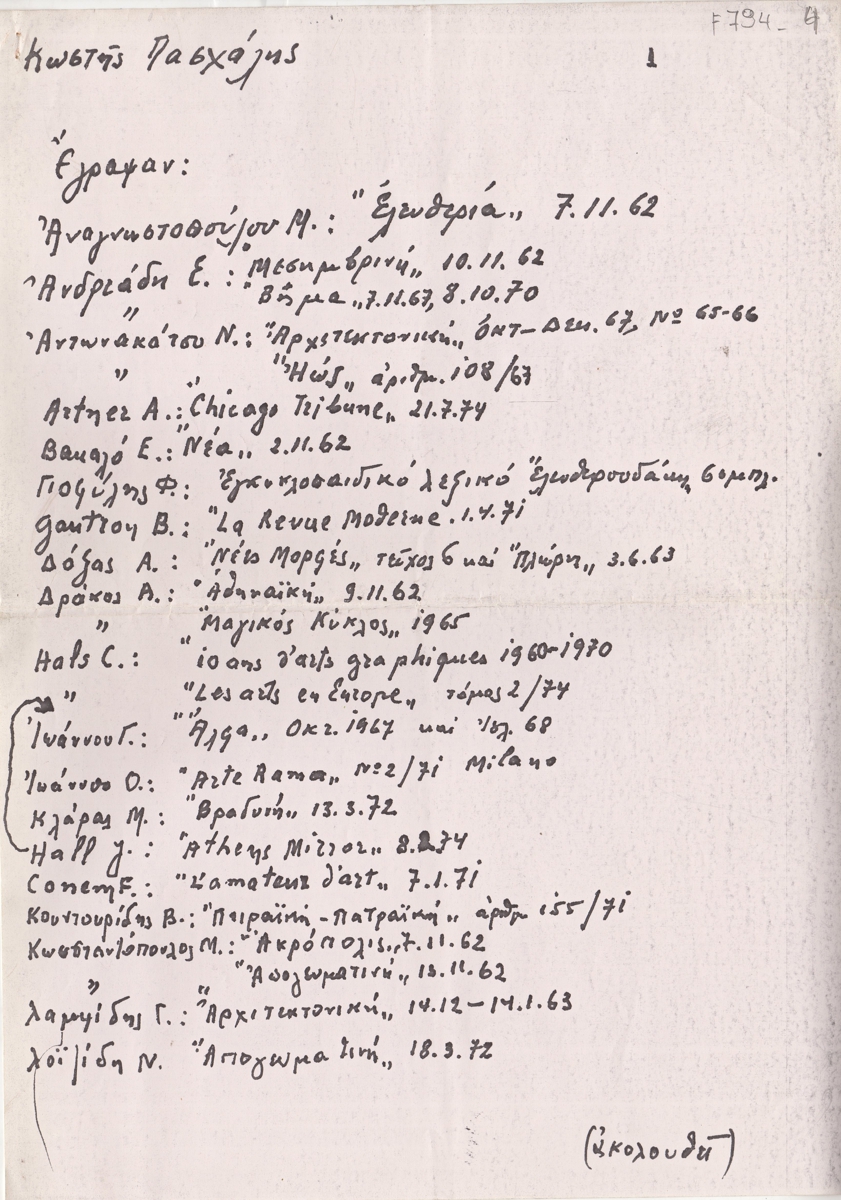 F794-4
Κωστής Πασχάλης 1
Ἔγραψαν:
Ἀναγνωστοπούλου Μ.: "Ἐλευθερία„ 7.11.62
Ἀνδρεάδη Ε.: "Μεσημβρινή„ 10.11.62
" "Βῆμα„ 7.11.67, 8.10.70
Ἀντωνακάτου Ν.: "Ἀρχιτεκτονική„ Ὀκτ-Δεκ. 67, Νο 65-66
" " "Ἠώς„ ἀριθμ. 108/67
Artner A.: "Chicago Tribune„ 21.7.74
Βακαλό Ε.: "Νέα„ 2.11.62
Γιοφύλης Φ.: Ἐγκυκλοπαιδικό λεξικό "Ἐλευθερουδάκη„ συμπλ.
Gautron B.: "La Revue Moderne. 1.4.71
Δόξας Α.: "Νέες Μορφές„ τεῦχος 6 καί "Πλώρη„ 3.6.63
Δράκος Α.: "Ἀθηναϊκή„ 9.11.62
" "Μαγικός Κύκλος„ 1965
Hals C.: "10 ans d'arts graphiques 1960-1970
" "Les arts en Europe„ τόμος 2/74
Ἰωάννου Γ.: "Ἄλφα„ Οκτ. 1967 καί Ἰούλ. 68
Ἰωάννου Ο.: "Arte Rama„ Νο 2/71 Milano
Κλάρας Μ.: "Βραδυνή„ 13.3.72
Hall J.: "Athens Mirror„ 8.2.74
Conem F.: "L'amateur d'art„ 7.1.71
Κουντουρίδης Β.: "Πειραϊκή-Πατραϊκή„ ἀριθμ 155/71
Κωσταντόπουλος Μ.: "Ἀκρόπολις„ 7.11.62
" " "Ἀπογευματινή„ 13.11.62
Λαμψίδης Γ.: "Ἀρχιτεκτονική„ 14.12-14.1.63
Λοϊζίδη Ν. "Απογευματινή„ 18.3.72
(ἀκολουθεῖ)